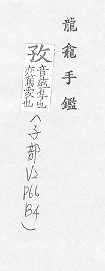 龍龕手鑑
孜
音茲隼也
恋篤愛也
(子部V2
P66
B4)